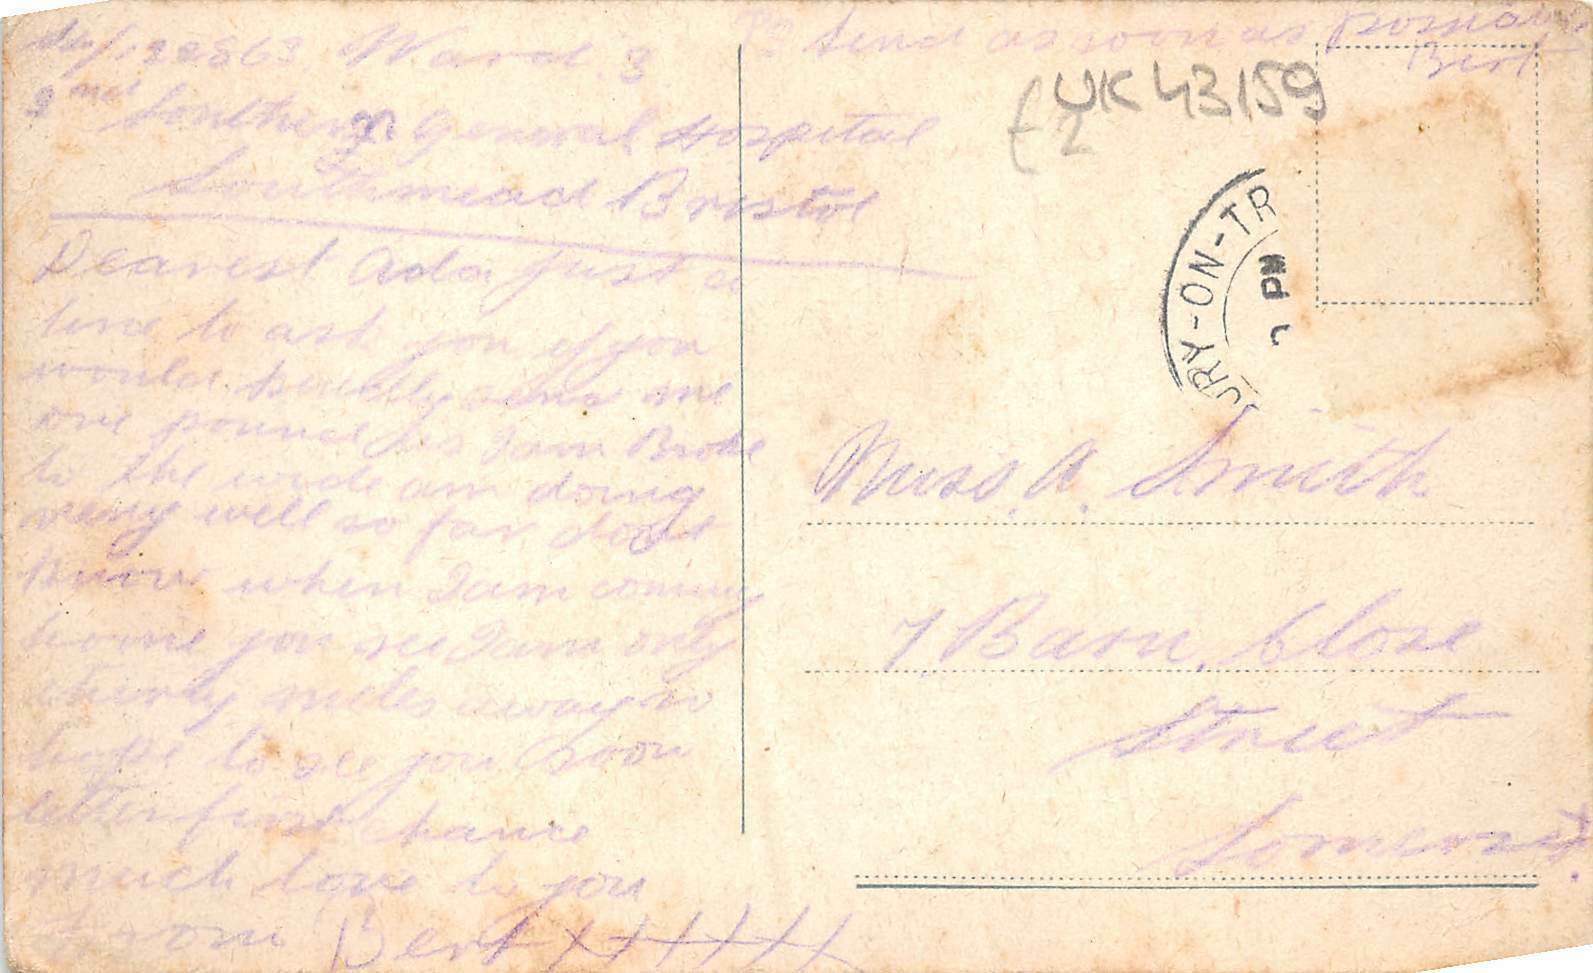 Ward 3
2nd Southern General Hospital
Southmead Bristol
Dearest Ada just a
line to ask you if you
would kindly send me
one pound as I am Broke
to the wide am doing
very well so far dont
know when I am coming
home you see I am only
thirty miles away so
hope to see you soon
letter first chance
much love to you
from Bert XXXXXX
PS Send as soon as
Bert
UK 43159
£2
URY-ON-TR
PM
Miss. A. Smith
7 Barn Close
Street
Somerset.